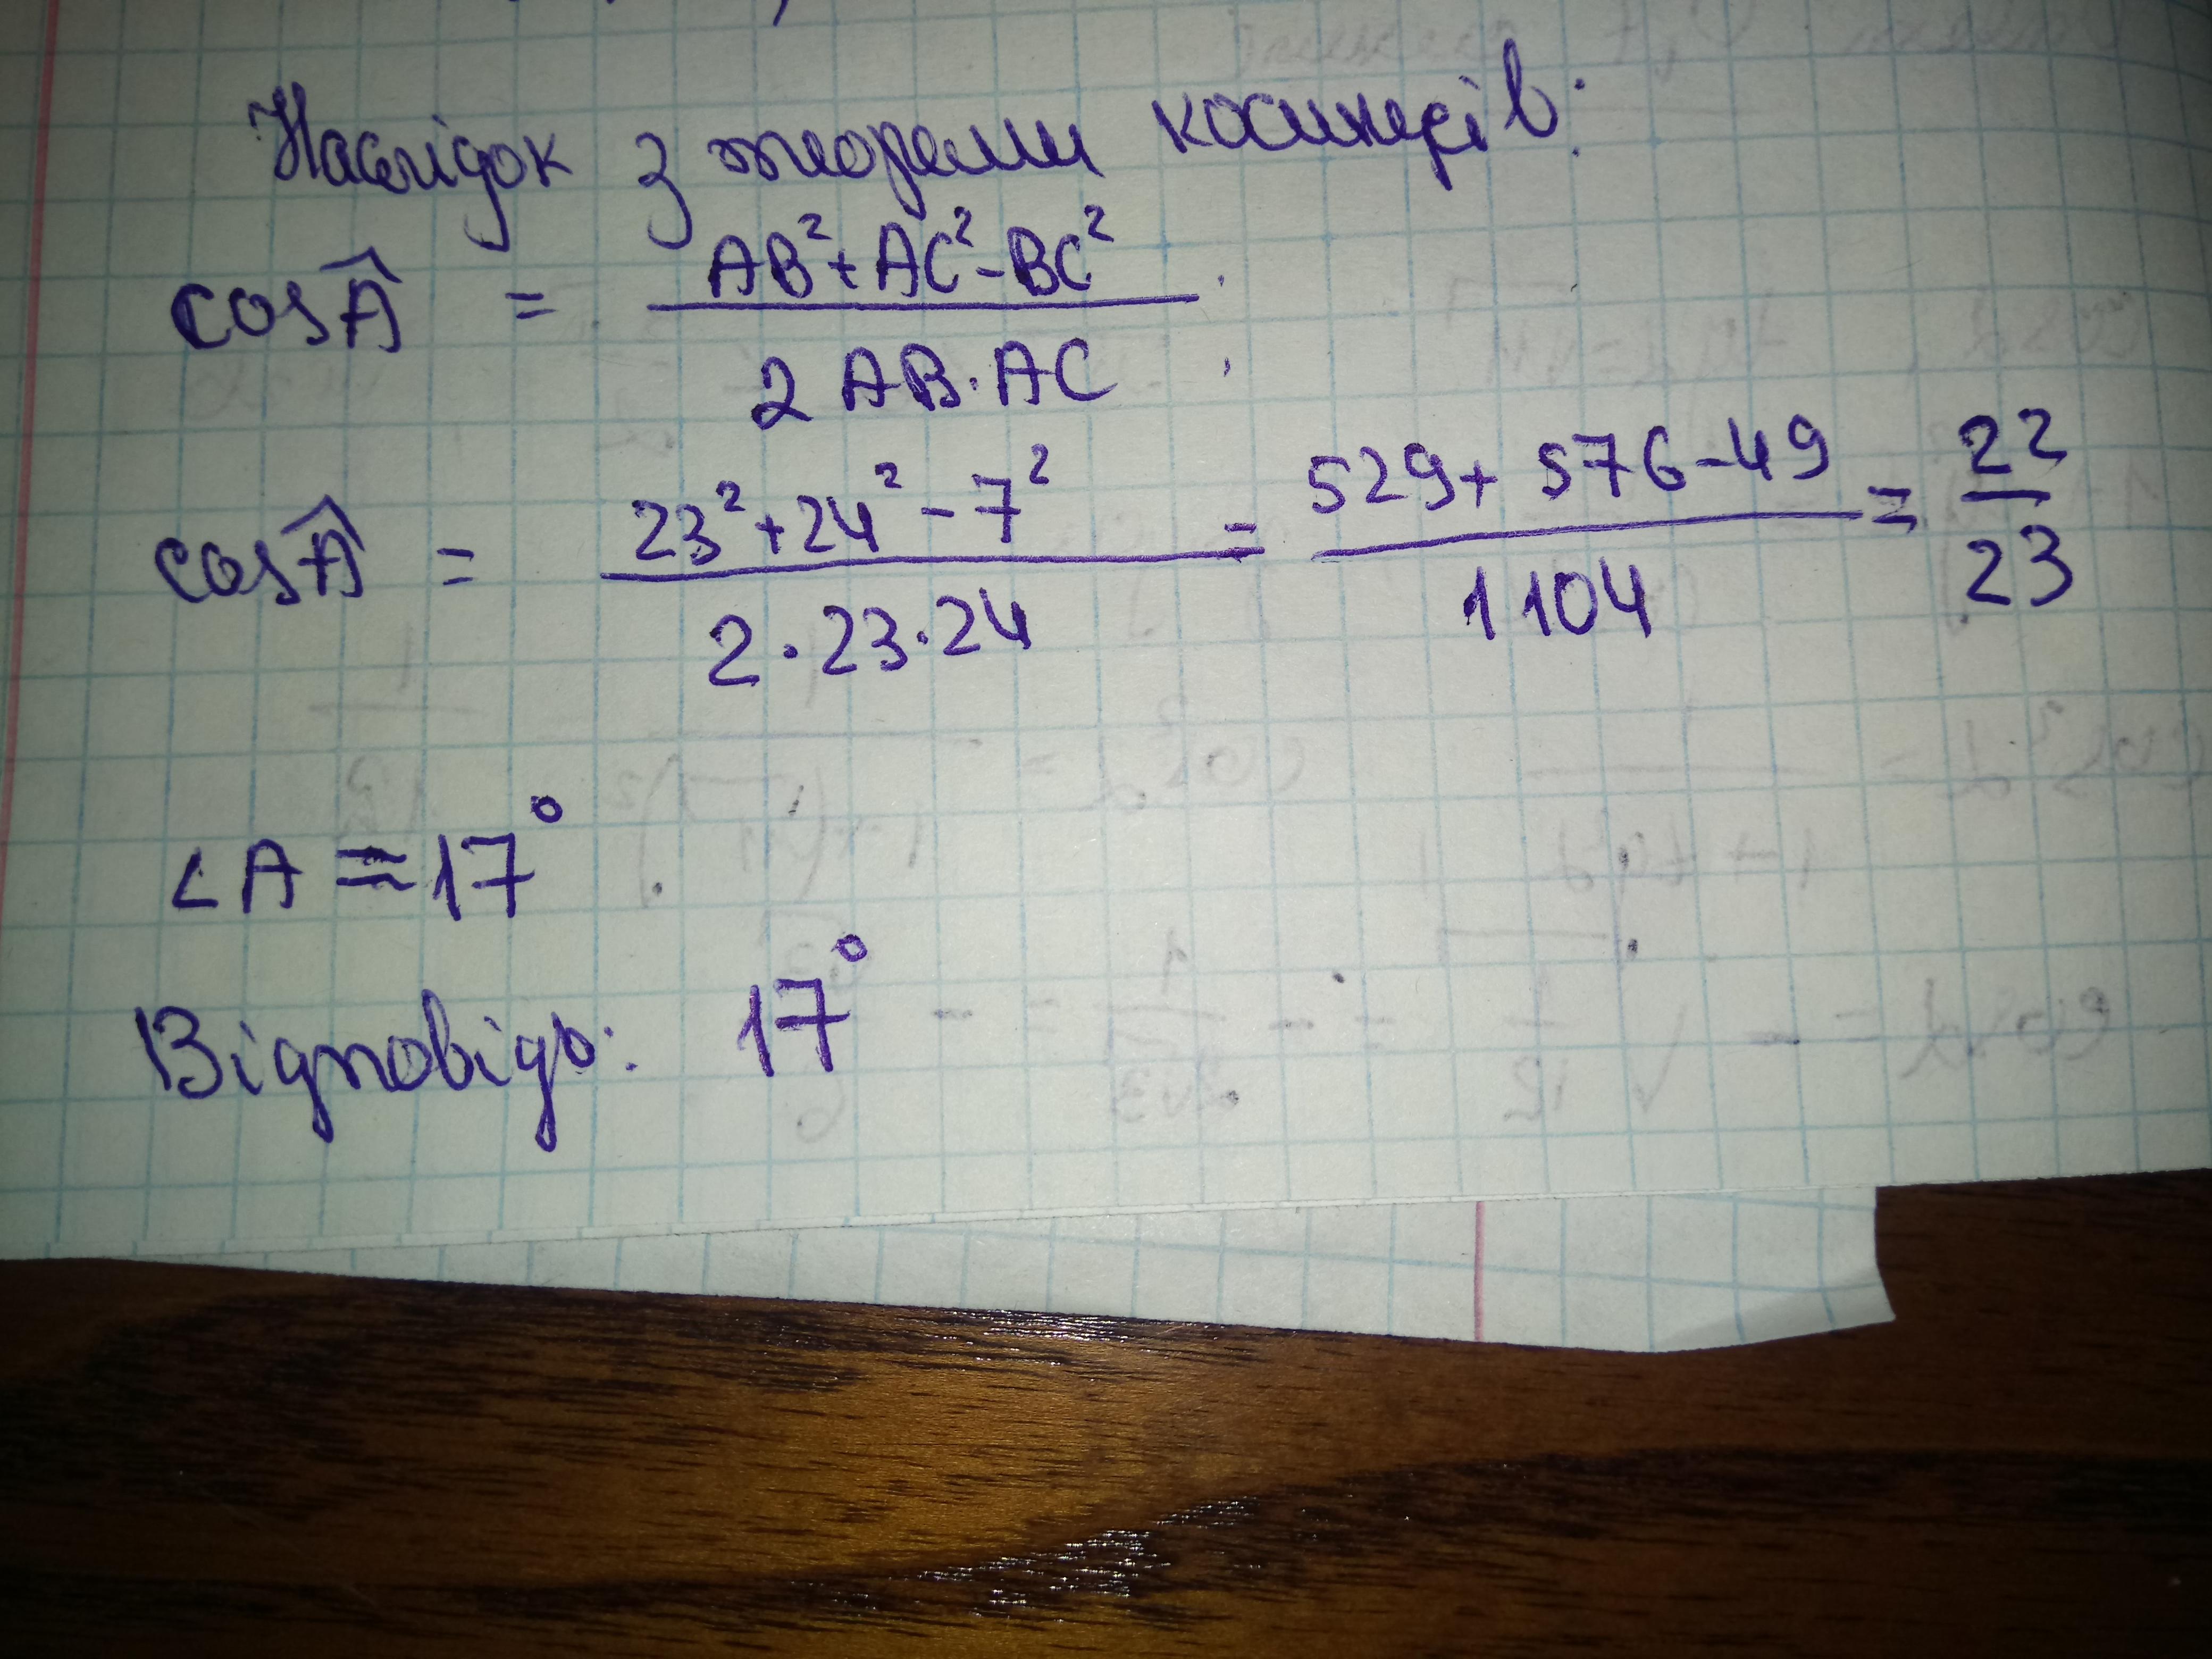 Наслідок з теореми косинусів:
cosÂ = (AB²+AC²-BC²)/(2AB·AC)
cosÂ = (23²+24²-7²)/(2·23·24) = (529+576-49)/1104 = 22/23
∠A ≈ 17°
Відповідь: 17°